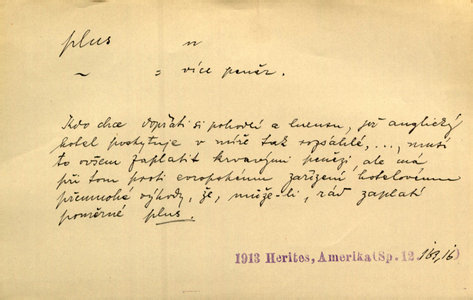 plus n
~ = více peněz.
Kdo chce dopřáti si pohodlí a luxusu, jež anglický
hotel poskytuje v míře tak rozsáhlé, ..., musí
to ovšem zaplatit krvavými penězi, ale má
při tom proti evropskému zařízení hotelovému
přemnohé výhody, že, může-li, rád zaplatí
poměrné plus.
1913 Herites, Amerika (Sp. 12 169,16)